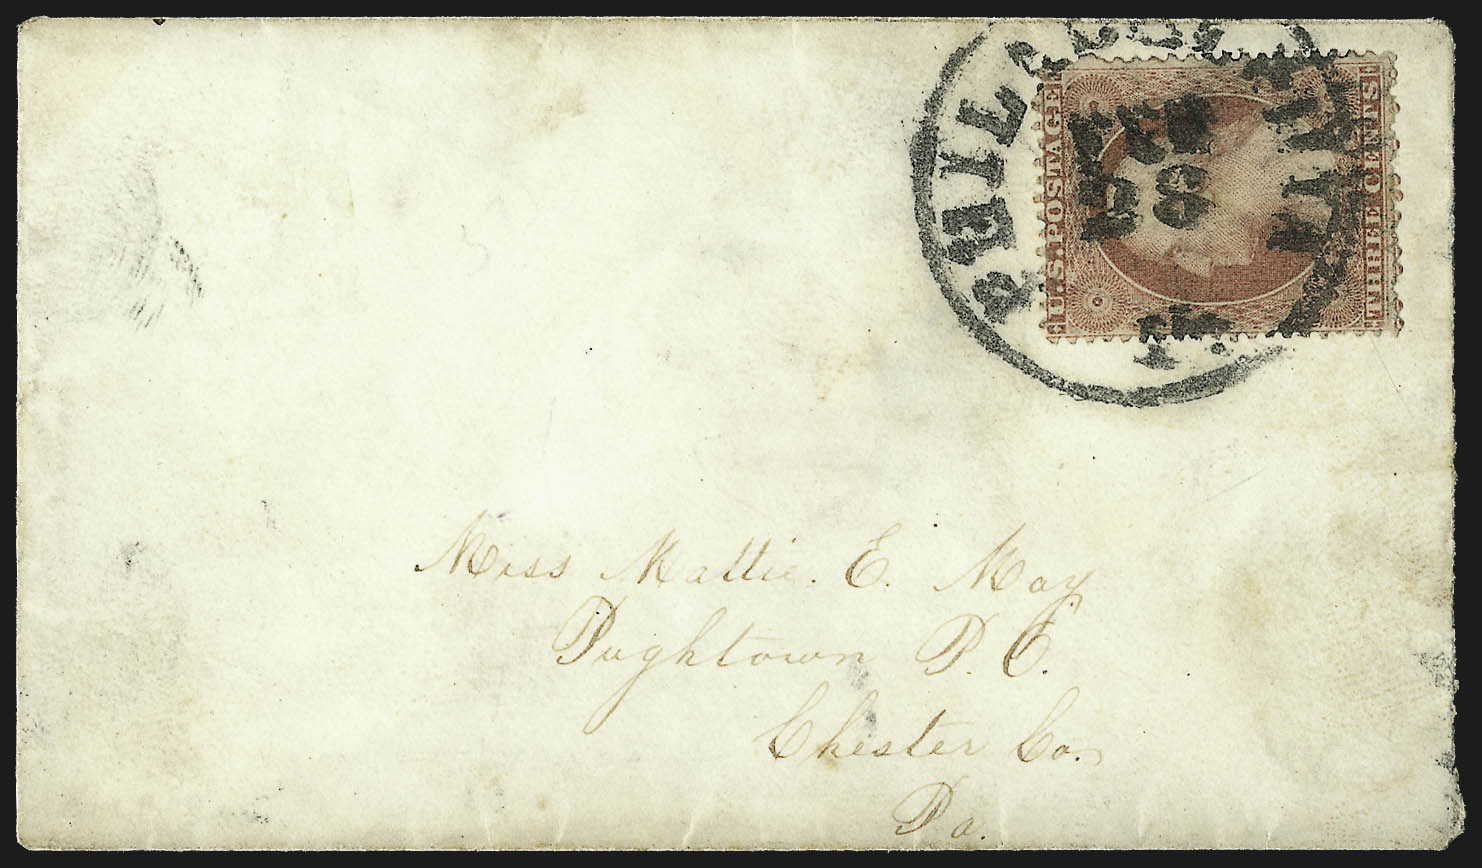 PHILADEL
PA.
U.S. POSTAGE
THREE CENTS
Miss Mattie. E. May
Pughtown P. O.
Chester Co.
Pa.